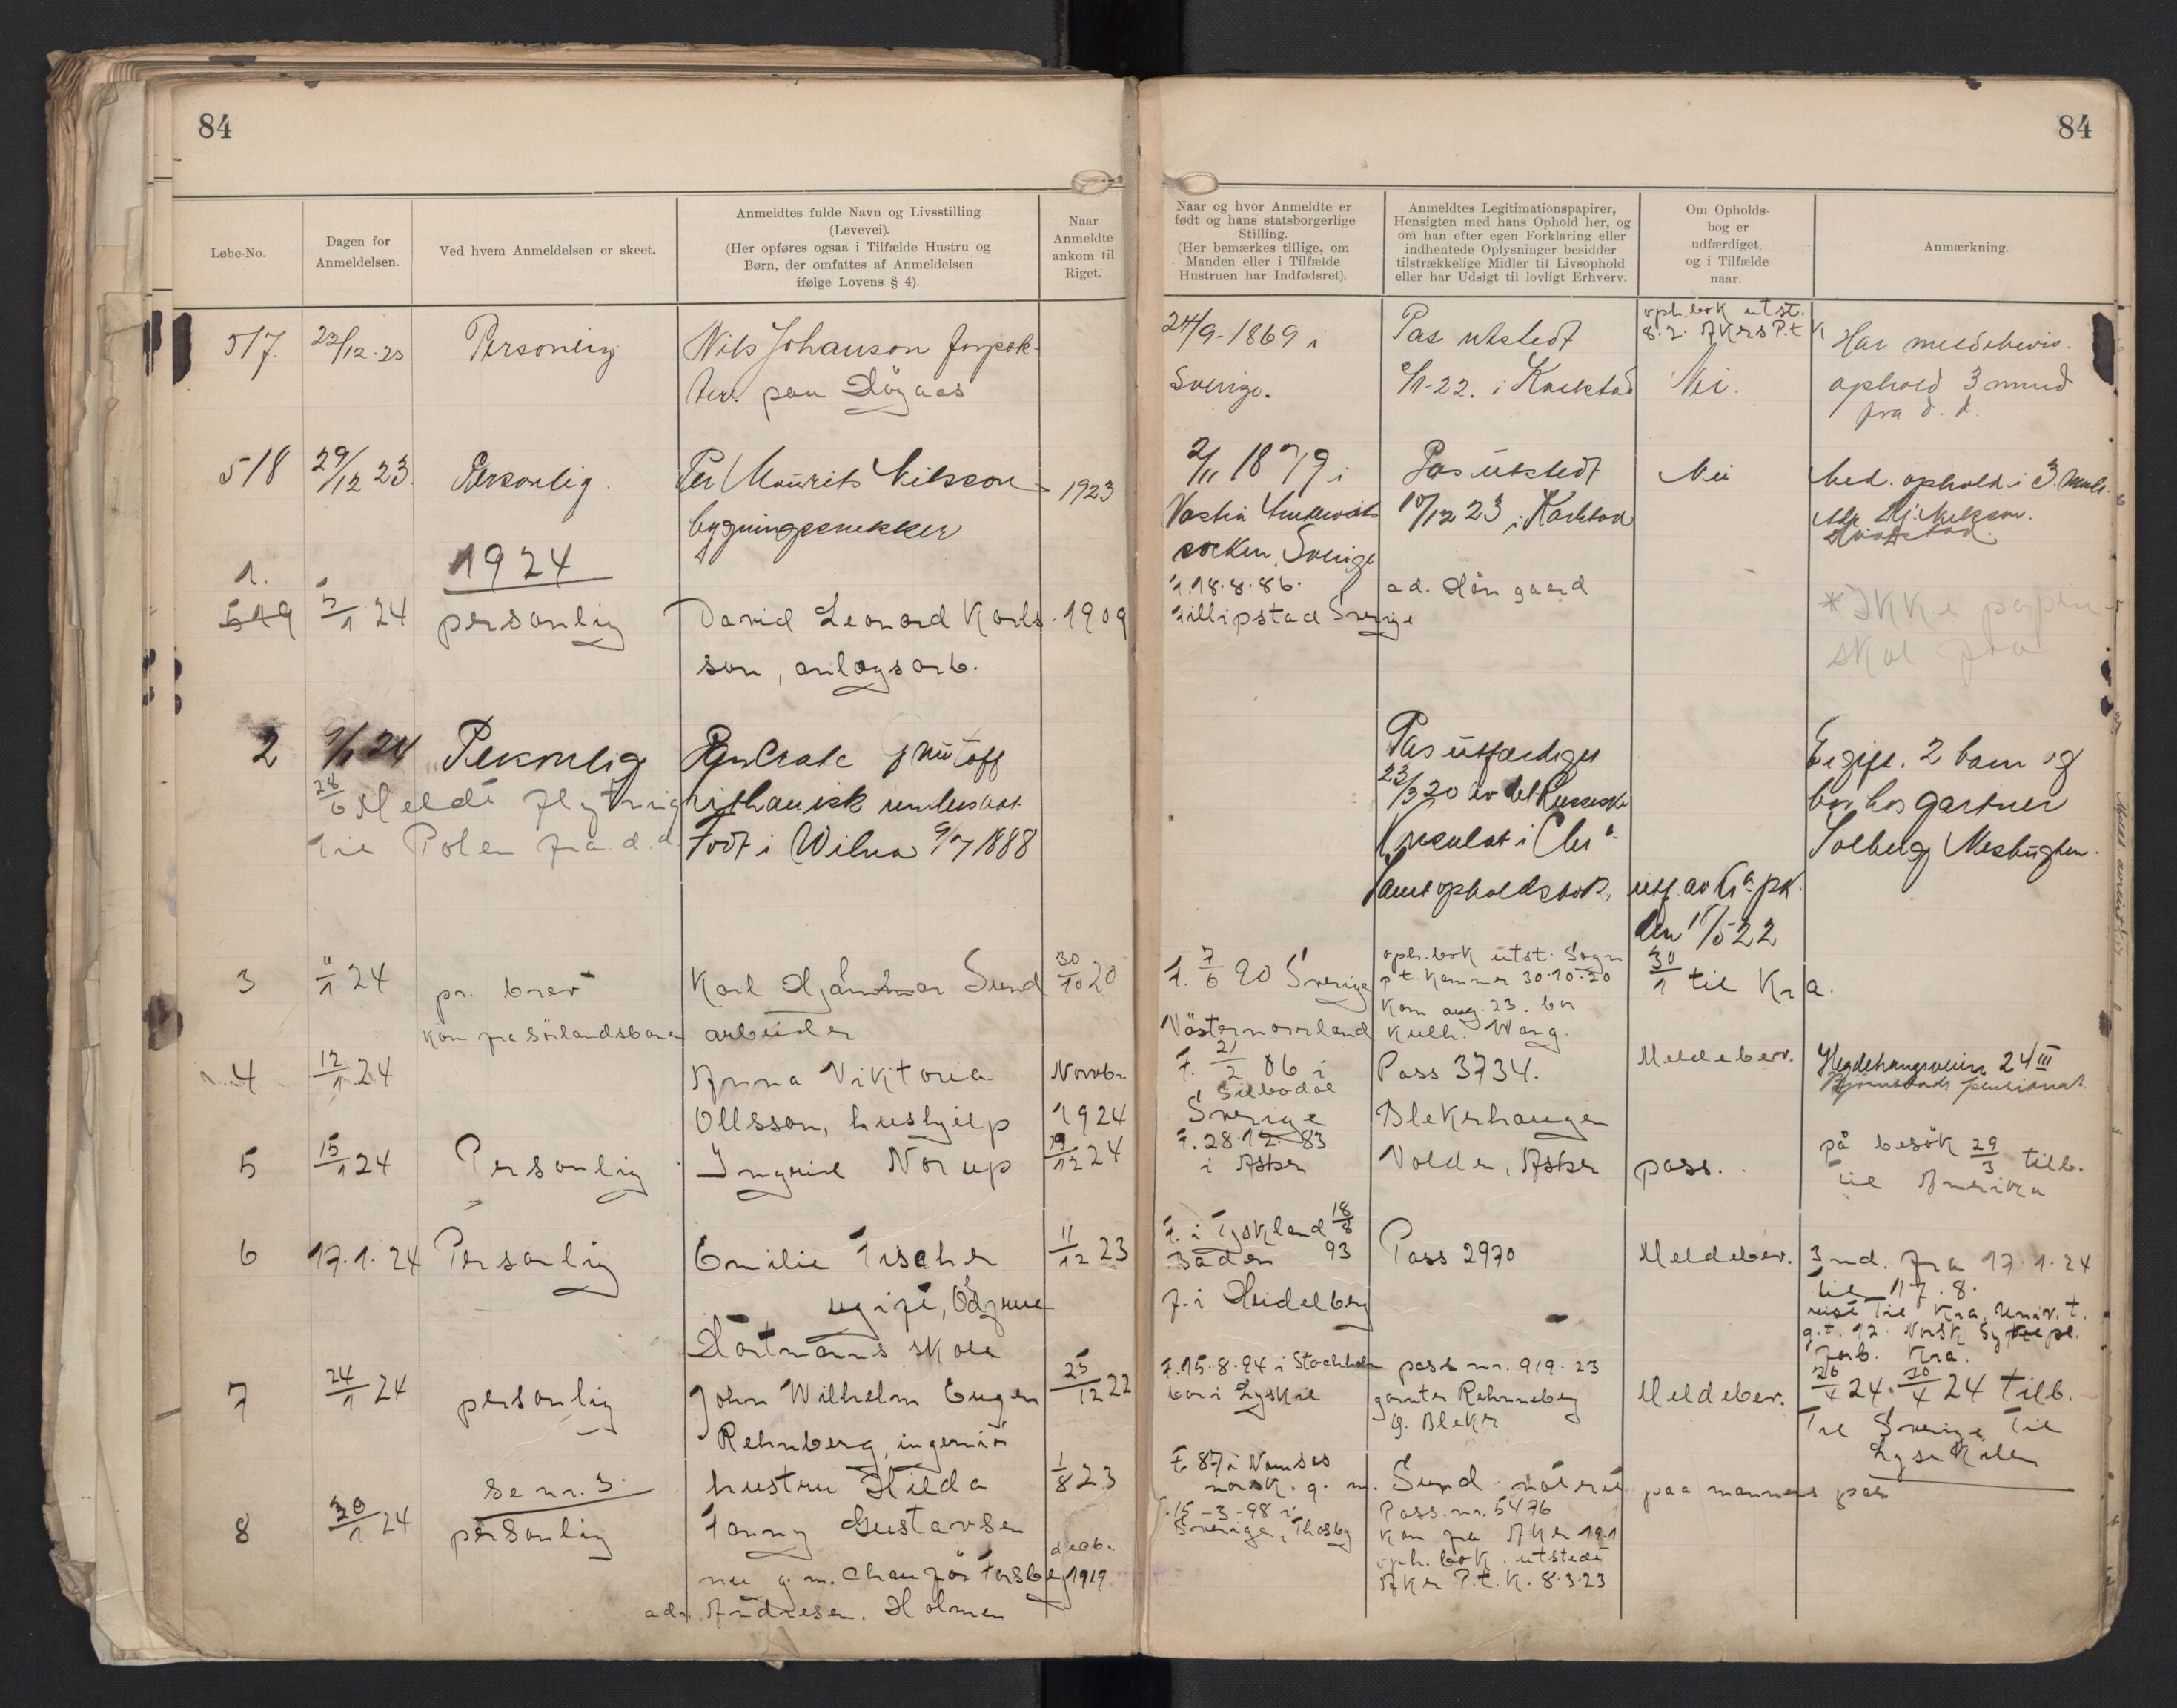 84
84
Løbe-No.
Dagen for
Anmeldelsen.
Ved hvem Anmeldelsen er skeet.
Anmeldtes fulde Navn og Livsstilling
(Levevei).
(Her opføres ogsaa i Tilfælde Hustru og
Børn, der omfattes af Anmeldelsen
ifølge Lovens § 4).
Naar
Anmeldte
ankom til
Riget.
Naar og hvor Anmeldte er
født og hans statsborgerlige
Stilling.
(Her bemærkes tillige, om
Manden eller i Tilfælde
Hustruen har Indfødsret).
Anmeldtes Legitimationspapirer,
Hensigten med hans Ophold her, og
om han efter egen Forklaring eller
indhentede Oplysninger besidder
tilstrækkelige Midler til Livsophold
eller har Udsigt til lovligt Erhverv.
Om Opholds-
bog er
udfærdiget,
og i Tilfælde
naar.
Anmærkning.
517. 22/12-23 Personlig
Nils Johanson forpak-
ter. paa Högaas
24/9-1869 i
Sverige.
Pas utstedt
1-22. i Karlstad
oph.bok utst.
8.2. Akers P.t K
Nei.
Har meldebevis.
ophold 3 mnd
fra d. d.
518 29/12 23. Personlig.
Per Maurits Nilsson
bygningssnekker
1923
2/11 1879 i
socken, Sverige
Pas utstedt
10/12 23 i Karlstad
Nei
Med. ophold i 3 mnd.
1924
1.
519 2/1 24 personlig
David Leonard Karls-
son, anlegsarb.
1909
f. 18.8.86.
Fillipstad Sverige
ad. Hön gaard
*Ikke papir
skal
2 9/1 24 Personlig
28/6 Meldt flytning
til Polen fra d.d.
lithauisk undersaat
Född i Wilna 9/7 1888
Pas utfærdiget
23/3 20 av det Russiske
Konsulat i Chr a.
samt opholdsbok, utf. av Kr a. pk.
den 11/5 22
Er gift. 2 barn og
bor hos gartner
Solberg
3 11/1 24 pr. brev
kom fra Sörlandsbanen
Karl Hjalmar Sund
arbeider
30/10 20
f. 7/6 90 Sverige
Västernorrland
oph.bok utst. Sogn
p t. kammer 30.10.20
kom aug. 23. bor
Wang.
30/1 til Kra.
4 12/1 24
Anna Viktoria
Ollsson, hushjelp
Novbr.
1924
f. 21/2 06 i
Silbodal
Sverige
Pass 3734.
Blekerhaugen
Meldebev.
Hegdehaugsveien 24 III
Björnstads pensionat
5 15/1 24 Personlig
Ingrid Norup
19/12 24
f. 28.12. 83
i Asker
Nolder, Asker
pass.
på besök 29/3 tilb.
til Amerika
6 17.1.24 Personlig
Emilie Fischer
ugift,
Hartmanns skole
11/12 23
f. i Tyskland 18/8
Baden 93
f. i Heidelberg
Pass 2970
Meldebev.
3 nd. fra 17.1.24
til 17.8.
reist til Kra. Univ. t.
g.t. 12 Norsk Sykepl.
forb. Kra.
7 24/1 24 personlig
John Wilhelm Eugen
Rehnberg, ingeniör
25/12 22
f. 15.8.94 i Stockholm
bor i Lyskil
pass nr. 919.23
g. Bleker
Meldebev.
26/4 24. 30/4 24 tilb.
Til Sverige til
Lysekilen
se nr. 3.
hustru Hilda
1/8 23
f. 87 i Namsos
norsk. g. m. Sund
paa mannens pas
8 30/1 24 personlig
Fanny Gustavsen
nu g. m. Chauför Forsberg
adr. Andresen. Holmen
decb.
1919
15-3-98 i
Sverige,
Pass. nr. 5476
kom fra Aker 19.1
oph. bok. utstedt
Aker P.t. K. 8.3.23